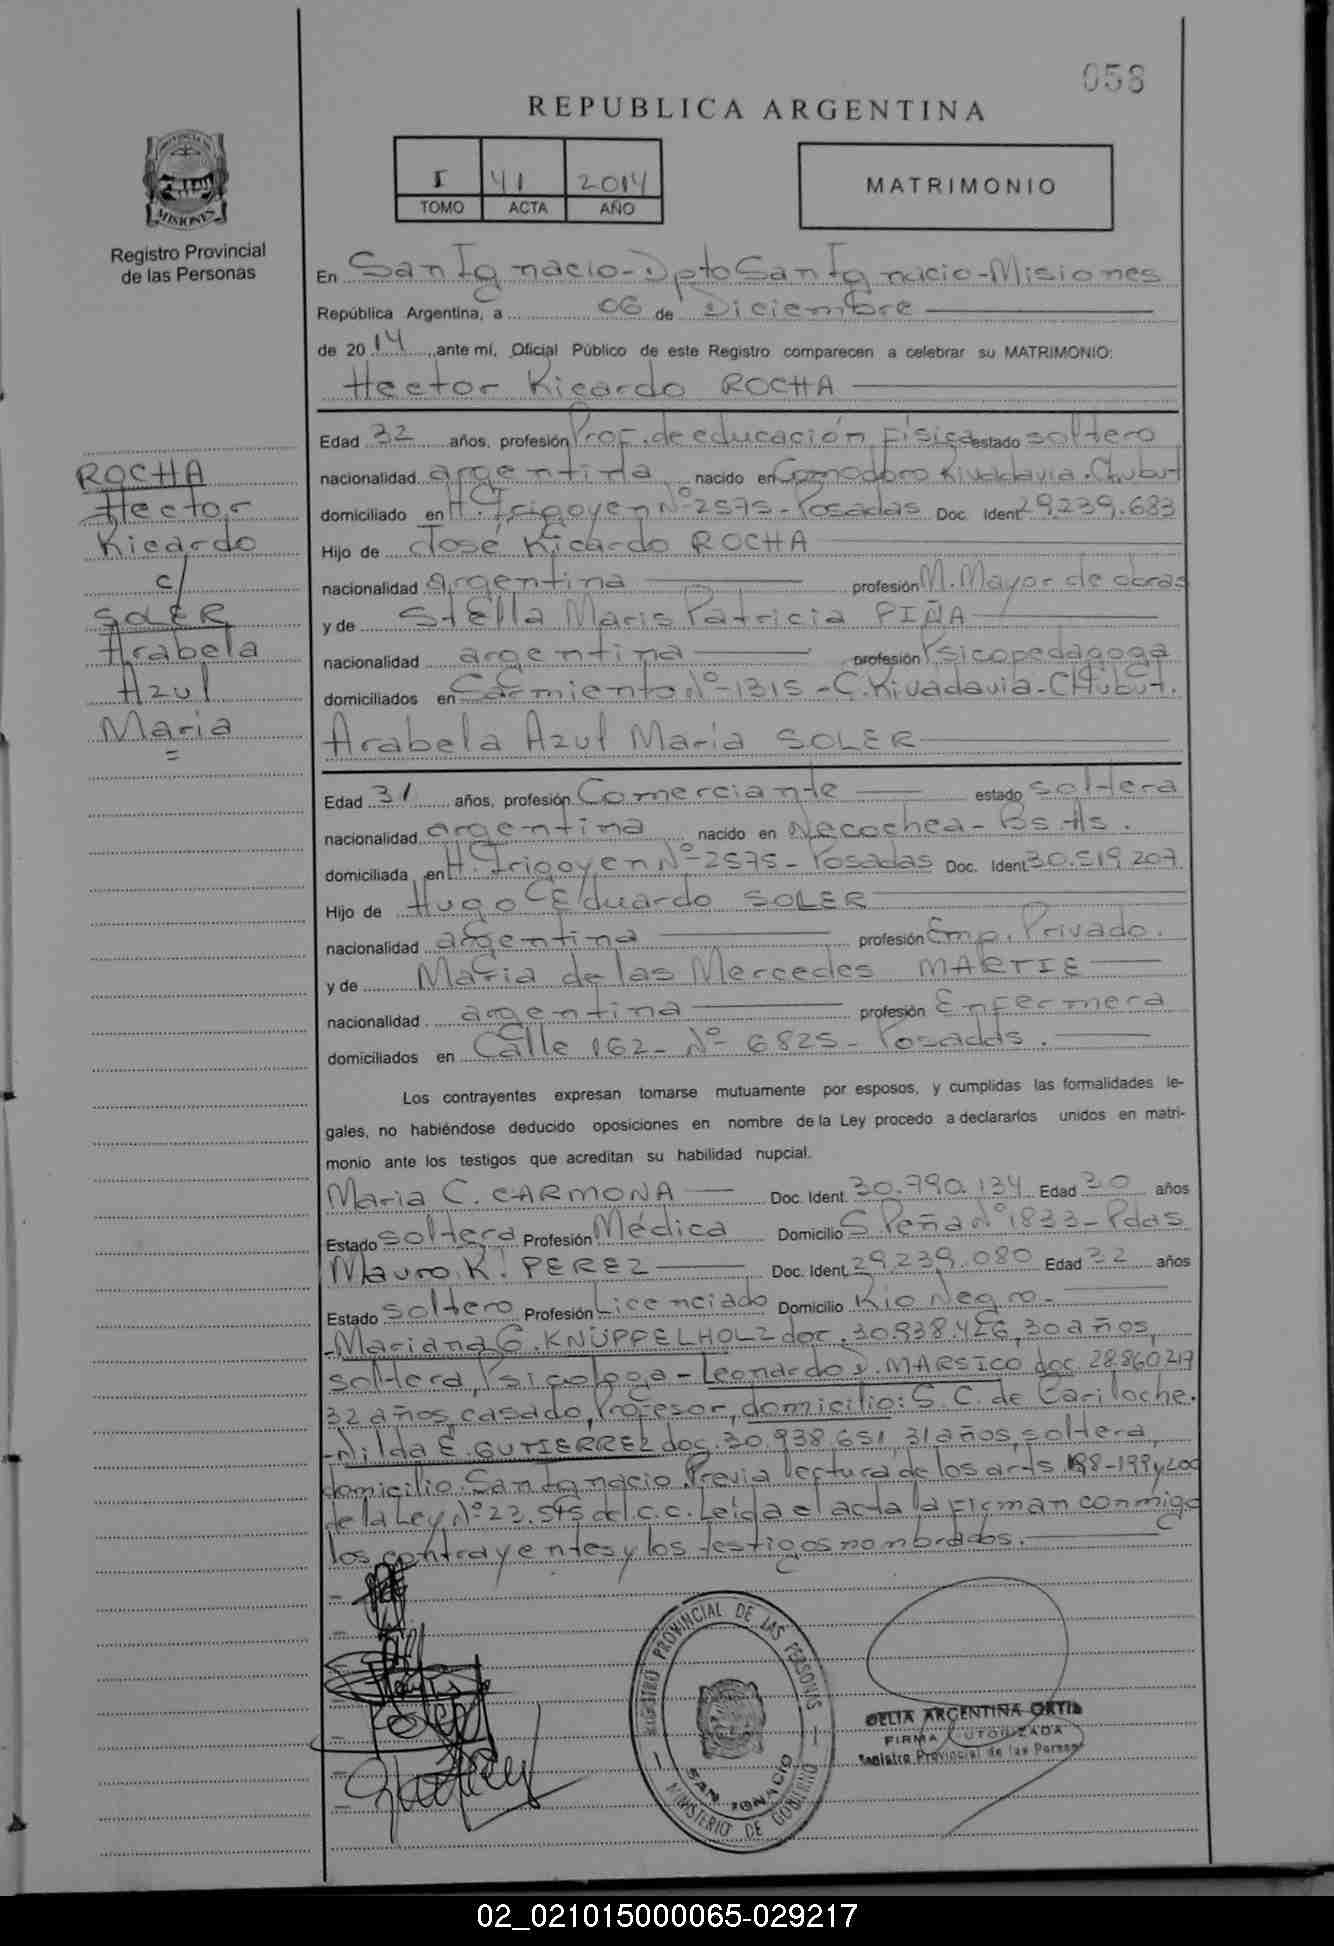 058
REPUBLICA ARGENTINA
I 41 2014
TOMO ACTA AÑO
MATRIMONIO
PROVINCIA DE
MISIONES
Registro Provincial
de las Personas
En San Ignacio - Dpto San Ignacio - Misiones
República Argentina, a 06 de Diciembre
de 2014, ante mí, Oficial Público de este Registro comparecen a celebrar su MATRIMONIO:
Hector Ricardo ROCHA
Edad 32 años, profesión Prof. de educación Física estado soltero
nacionalidad argentina nacido en Comodoro Rivadavia. Chubut
domiciliado en H. Irigoyen Nº 2575 - Posadas Doc. Ident 29.239.683
Hijo de José Ricardo ROCHA
nacionalidad argentina profesión M. Mayor de obras
y de Stella Maris Patricia PIÑA
nacionalidad argentina profesión Psicopedagoga
domiciliados en Sarmiento Nº 1315 - C. Rivadavia - Chubut.
Arabela Azul Maria SOLER
Edad 31 años, profesión Comerciante estado soltera
nacionalidad argentina nacido en Necochea - Bs. As.
domiciliada en H. Irigoyen Nº 2575 - Posadas Doc. Ident 30.519.207
Hijo de Hugo Eduardo SOLER
nacionalidad argentina profesión Emp. Privado.
y de Maria de las Mercedes MARTIE
nacionalidad argentina profesión Enfermera
domiciliados en Calle 162 - Nº 6825 - Posadas.
Los contrayentes expresan tomarse mutuamente por esposos, y cumplidas las formalidades le-
gales, no habiéndose deducido oposiciones en nombre de la Ley procedo a declararlos unidos en matri-
monio ante los testigos que acreditan su habilidad nupcial.
Maria C. CARMONA Doc. Ident. 30.790.134 Edad 30 años
Estado soltera Profesión Médica Domicilio S. Peña Nº 1833 - Pdas
Mauro R. PEREZ Doc. Ident. 29.239.080 Edad 32 años
Estado soltero Profesión Licenciado Domicilio Rio Negro.
- Mariana G. KNÜPPELHOLZ doc. 30.938.426, 30 años,
soltera, Psicologa - Leonardo D. MARSICO doc. 28.860.217
32 años, casado, Profesor, domicilio: S. C. de Bariloche.
- Nilda E. GUTIERREZ doc. 30.938.651, 31 años, soltera,
domicilio: San Ignacio. Previa lectura de los arts. 198-199 y 200
de la Ley Nº 23.515 del C.C. Leída el acta la firman conmigo
los contrayentes y los testigos nombrados.
ROCHA
Hector
Ricardo
c/
SOLER
Arabela
Azul
Maria
=
REGISTRO PROVINCIAL DE LAS PERSONAS
SAN IGNACIO
MINISTERIO DE GOBIERNO
DELIA ARGENTINA ORTIZ
FIRMA AUTORIZADA
Registro Provincial de las Personas
02_021015000065-029217